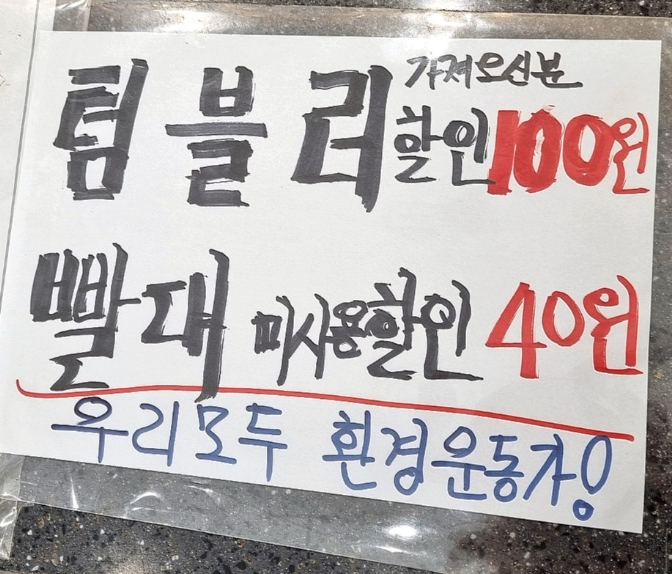 텀블러 가져오신분 할인 100원
빨대 미사용할인 40원
우리모두 환경운동가!